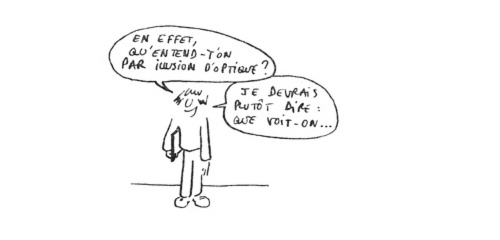 EN EFFET,
QU'ENTEND-T'ON
PAR ILLUSION D'OPTIQUE ?
JE DEVRAIS
PLUTÔT DIRE :
QUE VOIT-ON...